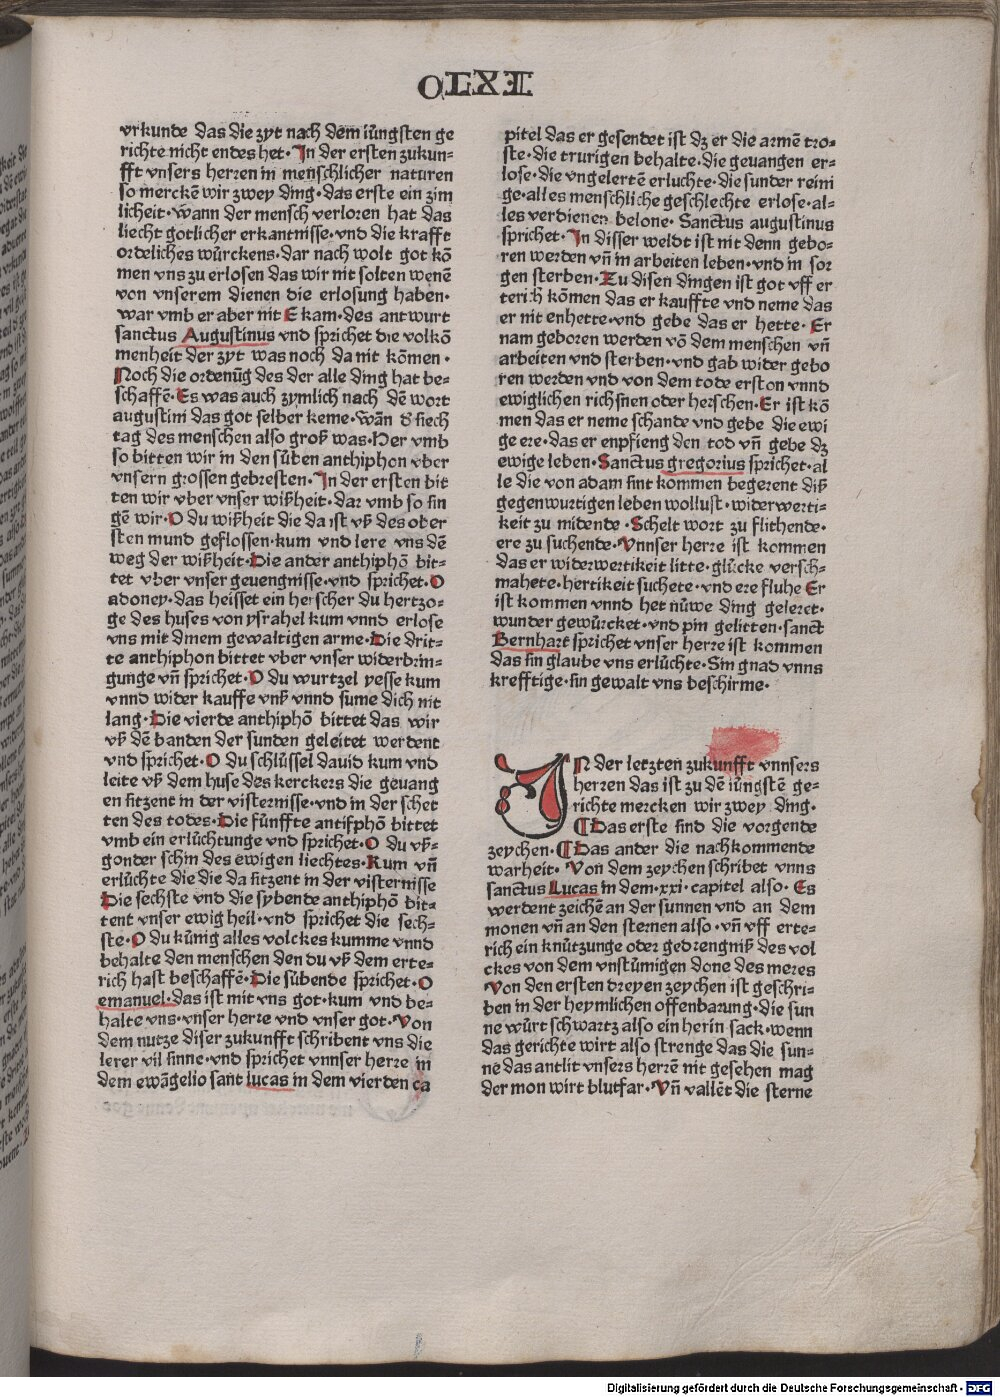 CLXI
vrkunde das die zyt nach dem iüngsten ge
richte nicht endes het· In der ersten zukun-
fft vnsers herren in menschlicher naturen
so merckē wir zwey ding· das erste ein zim
licheit· wann der mensch verloren hat das
liecht gotlicher erkantnisse· vnd die krafft
ordeliches würckens· dar nach wolt got kō
men vns zu erlosen das wir nit solten wenē
von vnserem dienen die erlosung haben·
war vmb er aber nit E kam· des antwurt
sanctus Augustinus vnd sprichet die volkō
menheit der zyt was noch da nit kōmen·
Noch die ordenūg des der alle ding hat be-
schaffē· Es was auch zymlich nach dē wort
augustini das got selber keme· wān d siech
tag des menschen also groß was· Her vmb
so bitten wir in den süben anthiphon vber
vnsern grossen gebresten· In der ersten bit
ten wir vber vnser wißheit· dar vmb so sin
gē wir· O du wißheit die da ist vß des ober
sten mund geflossen· kum vnd lere vns dē
weg der wißheit· Die ander anthiphō bit-
tet vber vnser geuengnisse· vnd sprichet· O
adoney· das heisset ein herscher du hertzo-
ge des huses von ysrahel kum vnnd erlose
vns mit dinem gewaltigen arme· Die drit-
te anthiphon bittet vber vnser widerbrin-
gunge vñ sprichet· O du wurtzel yesse kum
vnnd wider kauffe vnß vnnd sume dich nit
lang· Die vierde anthiphō bittet das wir
vß dē banden der sunden geleitet werdent
vnd sprichet· O du schlüssel dauid kum vnd
leite vß dem huse des kerckers die geuang
en sitzent in der visternisse· vnd in der schet
ten des todes· Die fünffte antifphō bittet
vmb ein erlüchtunge vnd sprichet· O du vß-
gonder schin des ewigen liechtes· Kum vñ
erlüchte die die da sitzent in der visternisse
Die sechste vnd die sybende anthiphō bit-
tent vnser ewig heil· vnd sprichet die sech-
ste· O du künig alles volckes kumme vnnd
behalte den menschen den du vß dem erte-
rich hast beschaffē· Die sübende sprichet· O
emanuel· das ist mit vns got· kum vnd be-
halte vns· vnser herre vnd vnser got· Von
dem nutze diser zukunfft schribent vns die
lerer vil sinne· vnd sprichet vnnser herre in
dem ewāgelio sant lucas in dem vierden ca
pitel das er gesendet ist dz er die armē tro-
ste· die trurigen behalte· die geuangen er-
lose· die vngelertē erluchte· die sunder reini
ge· alles menschliche geschlechte erlose· al-
les verdienen belone· Sanctus augustinus
sprichet· In disser weldt ist nit denn gebo-
ren werden vñ in arbeiten leben· vnd in sor
gen sterben· Zu disen dingen ist got vff er
terich kōmen das er kauffte vnd neme das
er nit enhette· vnd gebe das er hette· Er
nam geboren werden vō dem menschen vñ
arbeiten vnd sterben· vnd gab wider gebo
ren werden vnd von dem tode erston vnnd
ewiglichen richsnen oder herschen· Er ist kō
men das er neme schande vnd gebe die ewi
ge ere· das er enpfieng den tod vñ gebe dz
ewige leben· Sanctus gregorius sprichet· al
le die von adam sint kommen begerent diß
gegenwurtigen leben wollust· widerwerti-
keit zu midende· Schelt wort zu flithende·
ere zu suchende· Vnnser herre ist kommen
das er widerwertikeit litte· glücke versch-
mahete· hertikeit suchete· vnd ere fluhe Er
ist kommen vnnd het nüwe ding geleret·
wunder gewürcket· vnd pin gelitten· sanct
Bernhart sprichet vnser herre ist kommen
das sin glaube vns erlüchte· Sin gnad vnns
krefftige· sin gewalt vns beschirme·
IN der letzten zukunfft vnnsers
herren das ist zu dē iüngstē ge-
richte mercken wir zwey ding·
¶ Das erste sind die vorgende
zeychen· ¶ Das ander die nachkommende
warheit· Von dem zeychen schribet vnns
sanctus Lucas in dem· xxi· capitel also· Es
werdent zeichē an der sunnen vnd an dem
monen vñ an den sternen also· vñ vff erte-
rich ein knützunge oder gedrengniß des vol
ckes von dem vnstümigen done des meres
Von den ersten dreyen zeychen ist geschri-
ben in der heymlichen offenbarung· die sun
ne würt schwartz also ein herin sack· wenn
das gerichte wirt also strenge das die sun-
ne das antlit vnsers herrē nit gesehen mag
der mon wirt blutfar· Vñ vallēt die sterne
Digitalisierung gefördert durch die Deutsche Forschungsgemeinschaft - DFG